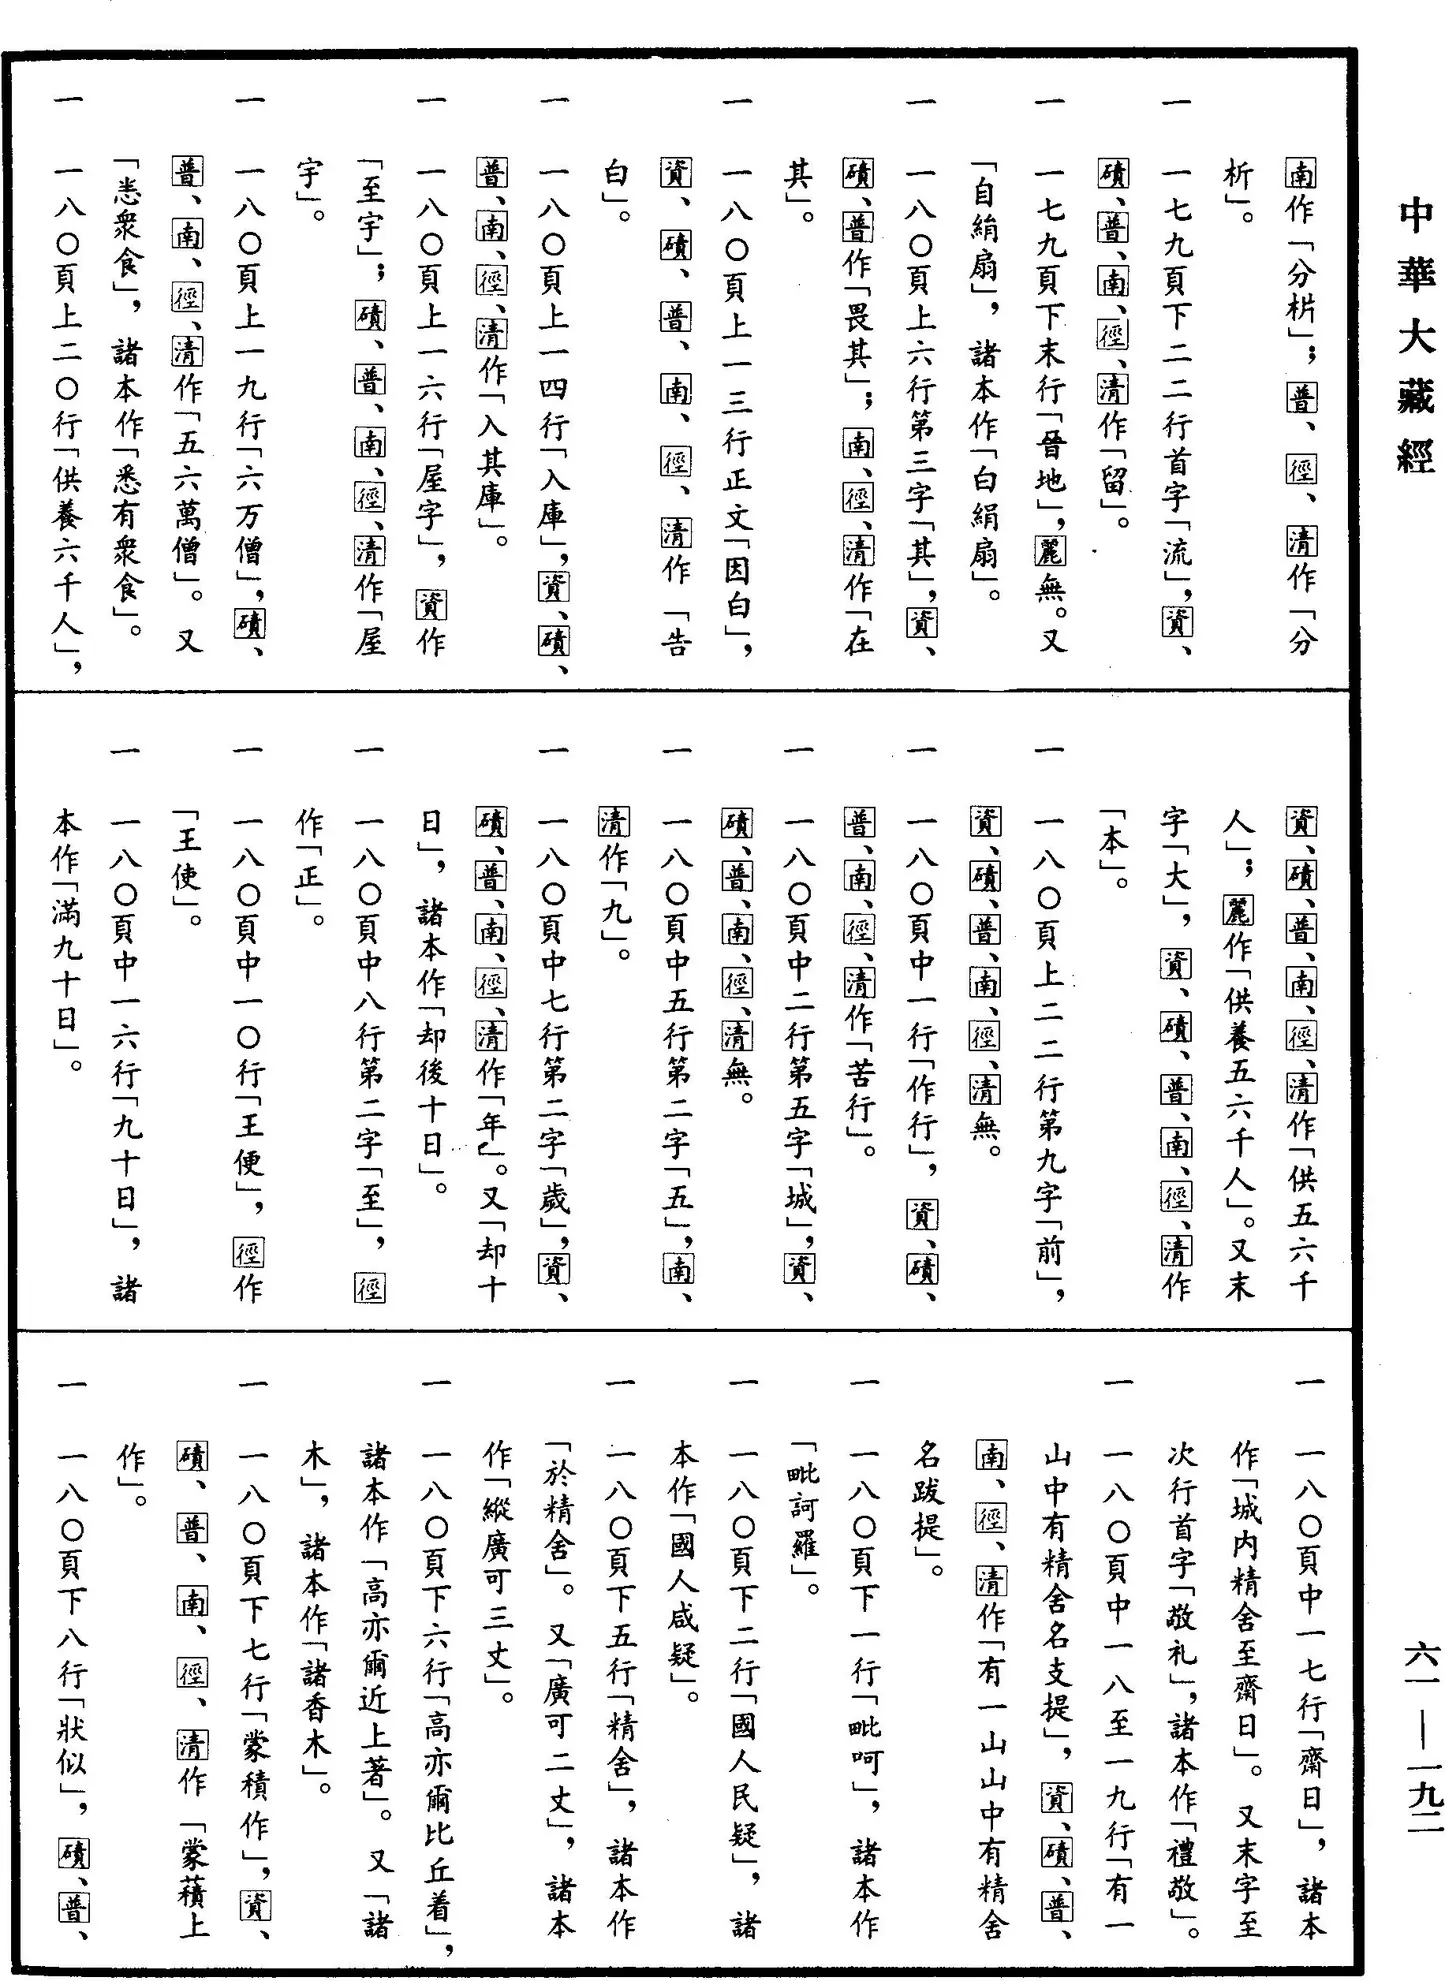 中華大藏經
南作「分枿」；普、徑、清作「分
析」。
一 一七九頁下二二行首字「流」，資、
磧、普、南、徑、清作「留」。
一 一七九頁下末行「晉地」，麗無。又
「自絹扇」，諸本作「白絹扇」。
一 一八〇頁上六行第三字「其」，資、
磧、普作「畏其」；南、徑、清作「在
其」。
一 一八〇頁上一三行正文「因白」，
資、磧、普、南、徑、清作「告
白」。
一 一八〇頁上一四行「入庫」，資、磧、
普、南、徑、清作「入其庫」。
一 一八〇頁上一六行「屋字」，資作
「至宇」；磧、普、南、徑、清作「屋
宇」。
一 一八〇頁上一九行「六万僧」，磧、
普、南、徑、清作「五六萬僧」。又
「恙衆食」，諸本作「悉有衆食」。
一 一八〇頁上二〇行「供養六千人」，
資、磧、普、南、徑、清作「供五六千
人」；麗作「供養五六千人」。又末
字「大」，資、磧、普、南、徑、清作
「本」。
一 一八〇頁上二二行第九字「前」，
資、磧、普、南、徑、清無。
一 一八〇頁中一行「作行」，資、磧、
普、南、徑、清作「苦行」。
一 一八〇頁中二行第五字「城」，資、
磧、普、南、徑、清無。
一 一八〇頁中五行第二字「五」，南、
清作「九」。
一 一八〇頁中七行第二字「歲」，資、
磧、普、南、徑、清作「年」。又「却十
日」，諸本作「却後十日」。
一 一八〇頁中八行第二字「至」，徑
作「正」。
一 一八〇頁中一〇行「王便」，徑作
「王使」。
一 一八〇頁中一六行「九十日」，諸
本作「滿九十日」。
一 一八〇頁中一七行「齋日」，諸本
作「城内精舍至齋日」。又末字至
次行首字「敬礼」，諸本作「禮敬」。
一 一八〇頁中一八至一九行「有一
山中有精舍名支提」，資、磧、普、
南、徑、清作「有一山山中有精舍
名跋提」。
一 一八〇頁下一行「毗呵」，諸本作
「毗訶羅」。
一 一八〇頁下二行「國人民疑」，諸
本作「國人咸疑」。
一 一八〇頁下五行「精舍」，諸本作
「於精舍」。又「廣可二丈」，諸本
作「縱廣可三丈」。
一 一八〇頁下六行「高亦爾比丘着」，
諸本作「高亦爾近上著」。又「諸
木」，諸本作「諸香木」。
一 一八〇頁下七行「蒙積作」，資、
磧、普、南、徑、清作「蒙𧂐上
作」。
一 一八〇頁下八行「狀似」，磧、普、
六一—一九二